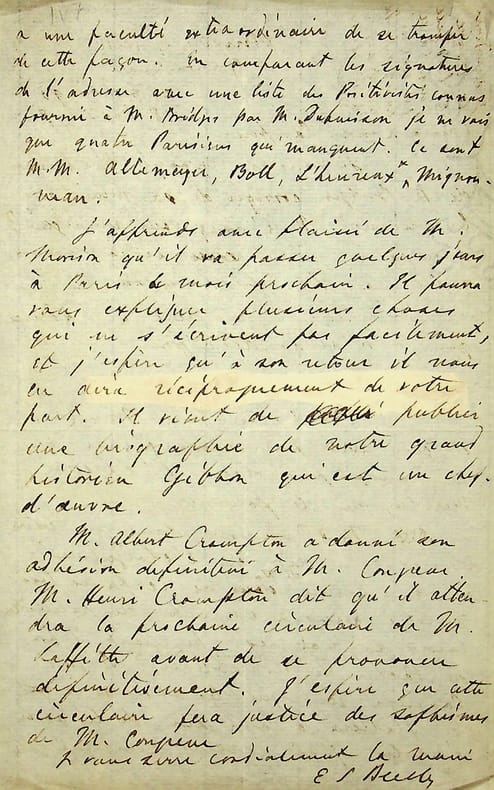 a une faculté extraordinaire de se tromper
de cette façon. En comparant les signatures
de l'adresse avec une liste des Positivistes connus
fournie à M. Bridges par M. Dubuisson je ne vois
que quatre Parisiens qui manquent. Ce sont
M.M. Allemeyer, Boll, L'heureux,
J'apprends avec plaisir de M.
Morison qu'il va passer quelques jours
à Paris le mois prochain. Il pourra
vous expliquer plusieurs choses
qui ne s'écrivent pas facilement,
et j'espère qu'à son retour il nous
en dira réciproquement de votre
part. Il vient de publier
une biographie de notre grand
historien Gibbon qui est un chef-
d'œuvre.
M. Albert Crompton a donné son
adhésion définitive à M. Congreve
M. Henri Crompton dit qu'il atten-
dra la prochaine circulaire de M.
Laffitte avant de se prononcer
définitivement. J'espère que cette
circulaire fera justice des sophismes
de M. Congreve
Je vous serre cordialement la main
E S Beesly